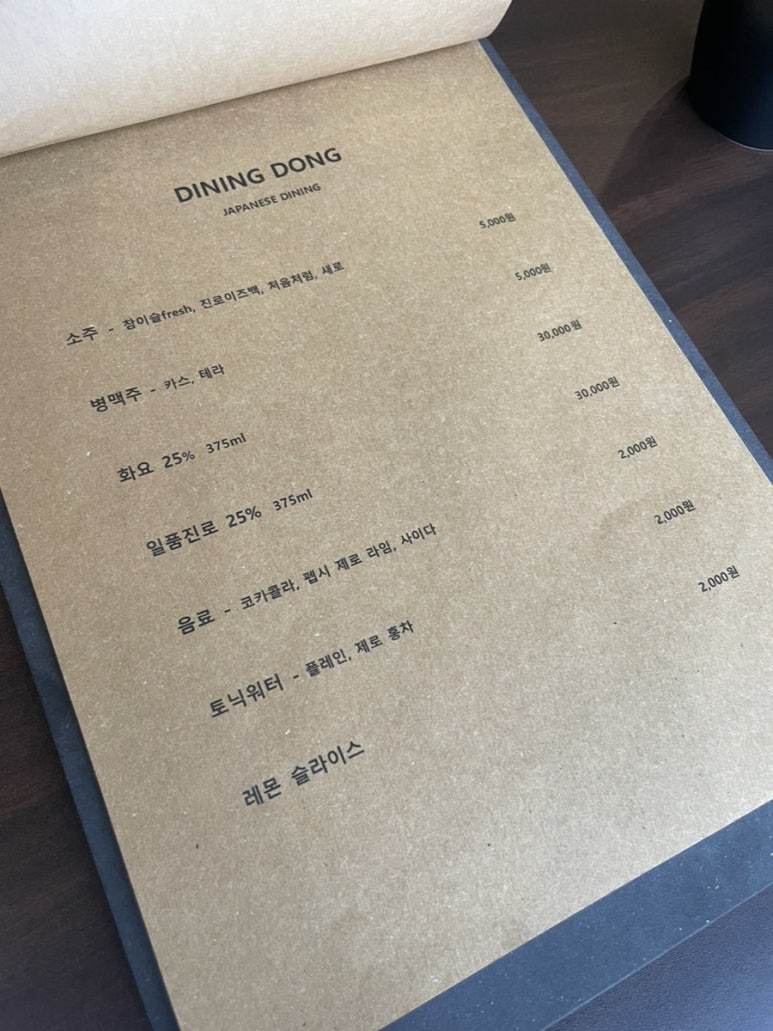 DINING DONG
JAPANESE DINING
소주 - 참이슬fresh, 진로이즈백, 처음처럼, 새로 5,000원
병맥주 - 카스, 테라 5,000원
화요 25% 375ml 30,000원
일품진로 25% 375ml 30,000원
음료 - 코카콜라, 펩시 제로 라임, 사이다 2,000원
토닉워터 - 플레인, 제로 홍차 2,000원
레몬 슬라이스 2,000원